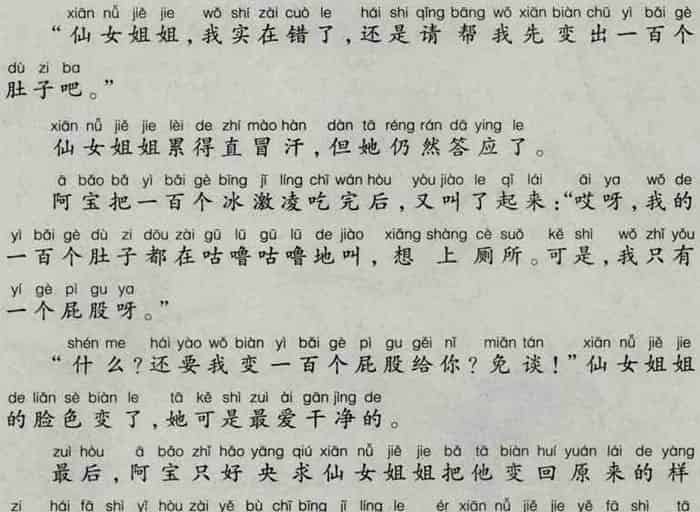 xiān nǚ jiě jie wǒ shí zài cuò le hái shi qǐng bāng wǒ xiān biàn chū yì bǎi gè
“仙女姐姐,我实在错了,还是请帮我先变出一百个
dù zi ba
肚子吧。”
xiān nǚ jiě jie lèi de zhí mào hàn dàn tā réng rán dā ying le
仙女姐姐累得直冒汗,但她仍然答应了。
ā bǎo bǎ yì bǎi gè bīng jī líng chī wán hòu yòu jiào le qǐ lái āi ya wǒ de
阿宝把一百个冰激凌吃完后,又叫了起来:“哎呀,我的
yì bǎi gè dù zi dōu zài gū lū gū lū de jiào xiǎng shàng cè suǒ kě shì wǒ zhǐ yǒu
一百个肚子都在咕噜咕噜地叫,想上厕所。可是,我只有
yí gè pì gu ya
一个屁股呀。”
shén me hái yào wǒ biàn yì bǎi gè pì gu gěi nǐ miǎn tán xiān nǚ jiě jie
“什么?还要我变一百个屁股给你?免谈!”仙女姐姐
de liǎn sè biàn le tā kě shì zuì ài gān jìng de
的脸色变了,她可是最爱干净的。
zuì hòu ā bǎo zhǐ hǎo yāng qiú xiān nǚ jiě jie bǎ tā biàn huí yuán lái de yàng
最后,阿宝只好央求仙女姐姐把他变回原来的样
zi hái fā shì yǐ hòu zài yě bù chī bīng jī líng le ér xiān nǚ jiě jie yě fā shì tā